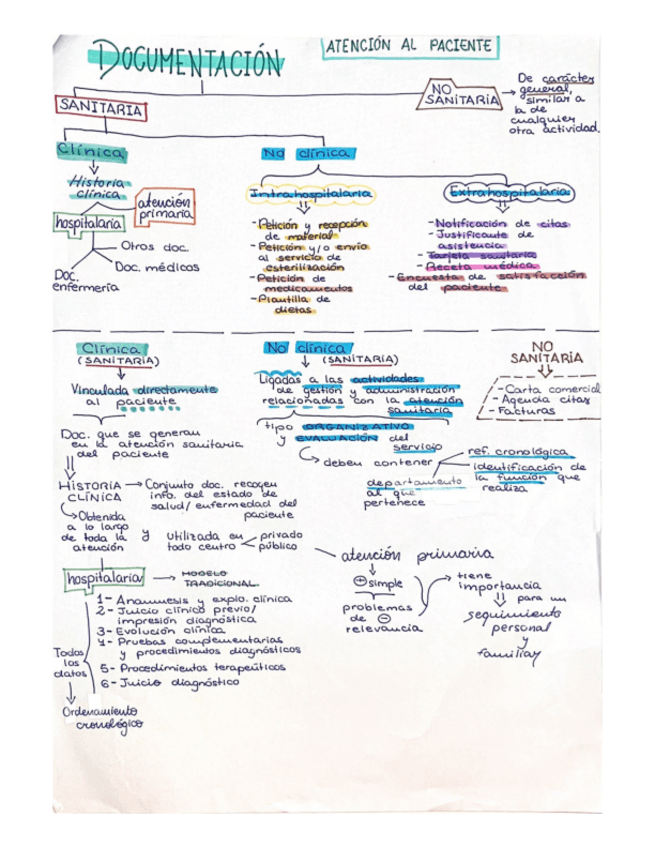 DOCUMENTACIÓN
ATENCIÓN AL PACIENTE
SANITARIA
NO
SANITARIA
De carácter
general,
similar a
la de
cualquier
otra actividad.
Clínica
No clínica
Historia
clínica
atención
primaria
hospitalaria
Otros doc.
Doc. médicos
Doc.
enfermería
Intrahospitalaria
- Petición y recepción
de material
- Petición y/o envío
al servicio de
esterilización
- Petición de
medicamentos
- Plantilla de
dietas
Extrahospitalaria
- Notificación de citas
- Justificante de
asistencia
- Tarjeta sanitaria
- Receta médica
- Encuesta de satisfacción
del paciente
Clínica
(SANITARIA)
Vinculada directamente
al paciente
Doc. que se generan
en la atención sanitaria
del paciente
HISTORIA
CLÍNICA
Conjunto doc. recogen
info. del estado de
salud/enfermedad del
paciente
Obtenida
a lo largo
de toda la
atención
y
utilizada en
todo centro
privado
público
No clínica
(SANITARIA)
Ligadas a las actividades
de gestión y administración
relacionadas con la atención
sanitaria
tipo ORGANIZATIVO
y EVALUACIÓN del
servicio
deben contener
ref. cronológica
identificación de
la función que
realiza
departamento
al que
pertenece
NO
SANITARIA
- Carta comercial
- Agenda citas
- Facturas
hospitalaria
MODELO
TRADICIONAL
1- Anamnesis y explo. clínica
2- Juicio clínico previo/
impresión diagnóstica
3- Evolución clínica
4- Pruebas complementarias
y procedimientos diagnósticos
5- Procedimientos terapeúticos
6- Juicio diagnóstico
Todos
los
datos
Ordenamiento
cronológico
atención primaria
+ simple
problemas
de -
relevancia
tiene
importancia
para un
seguimiento
personal
y
familiar